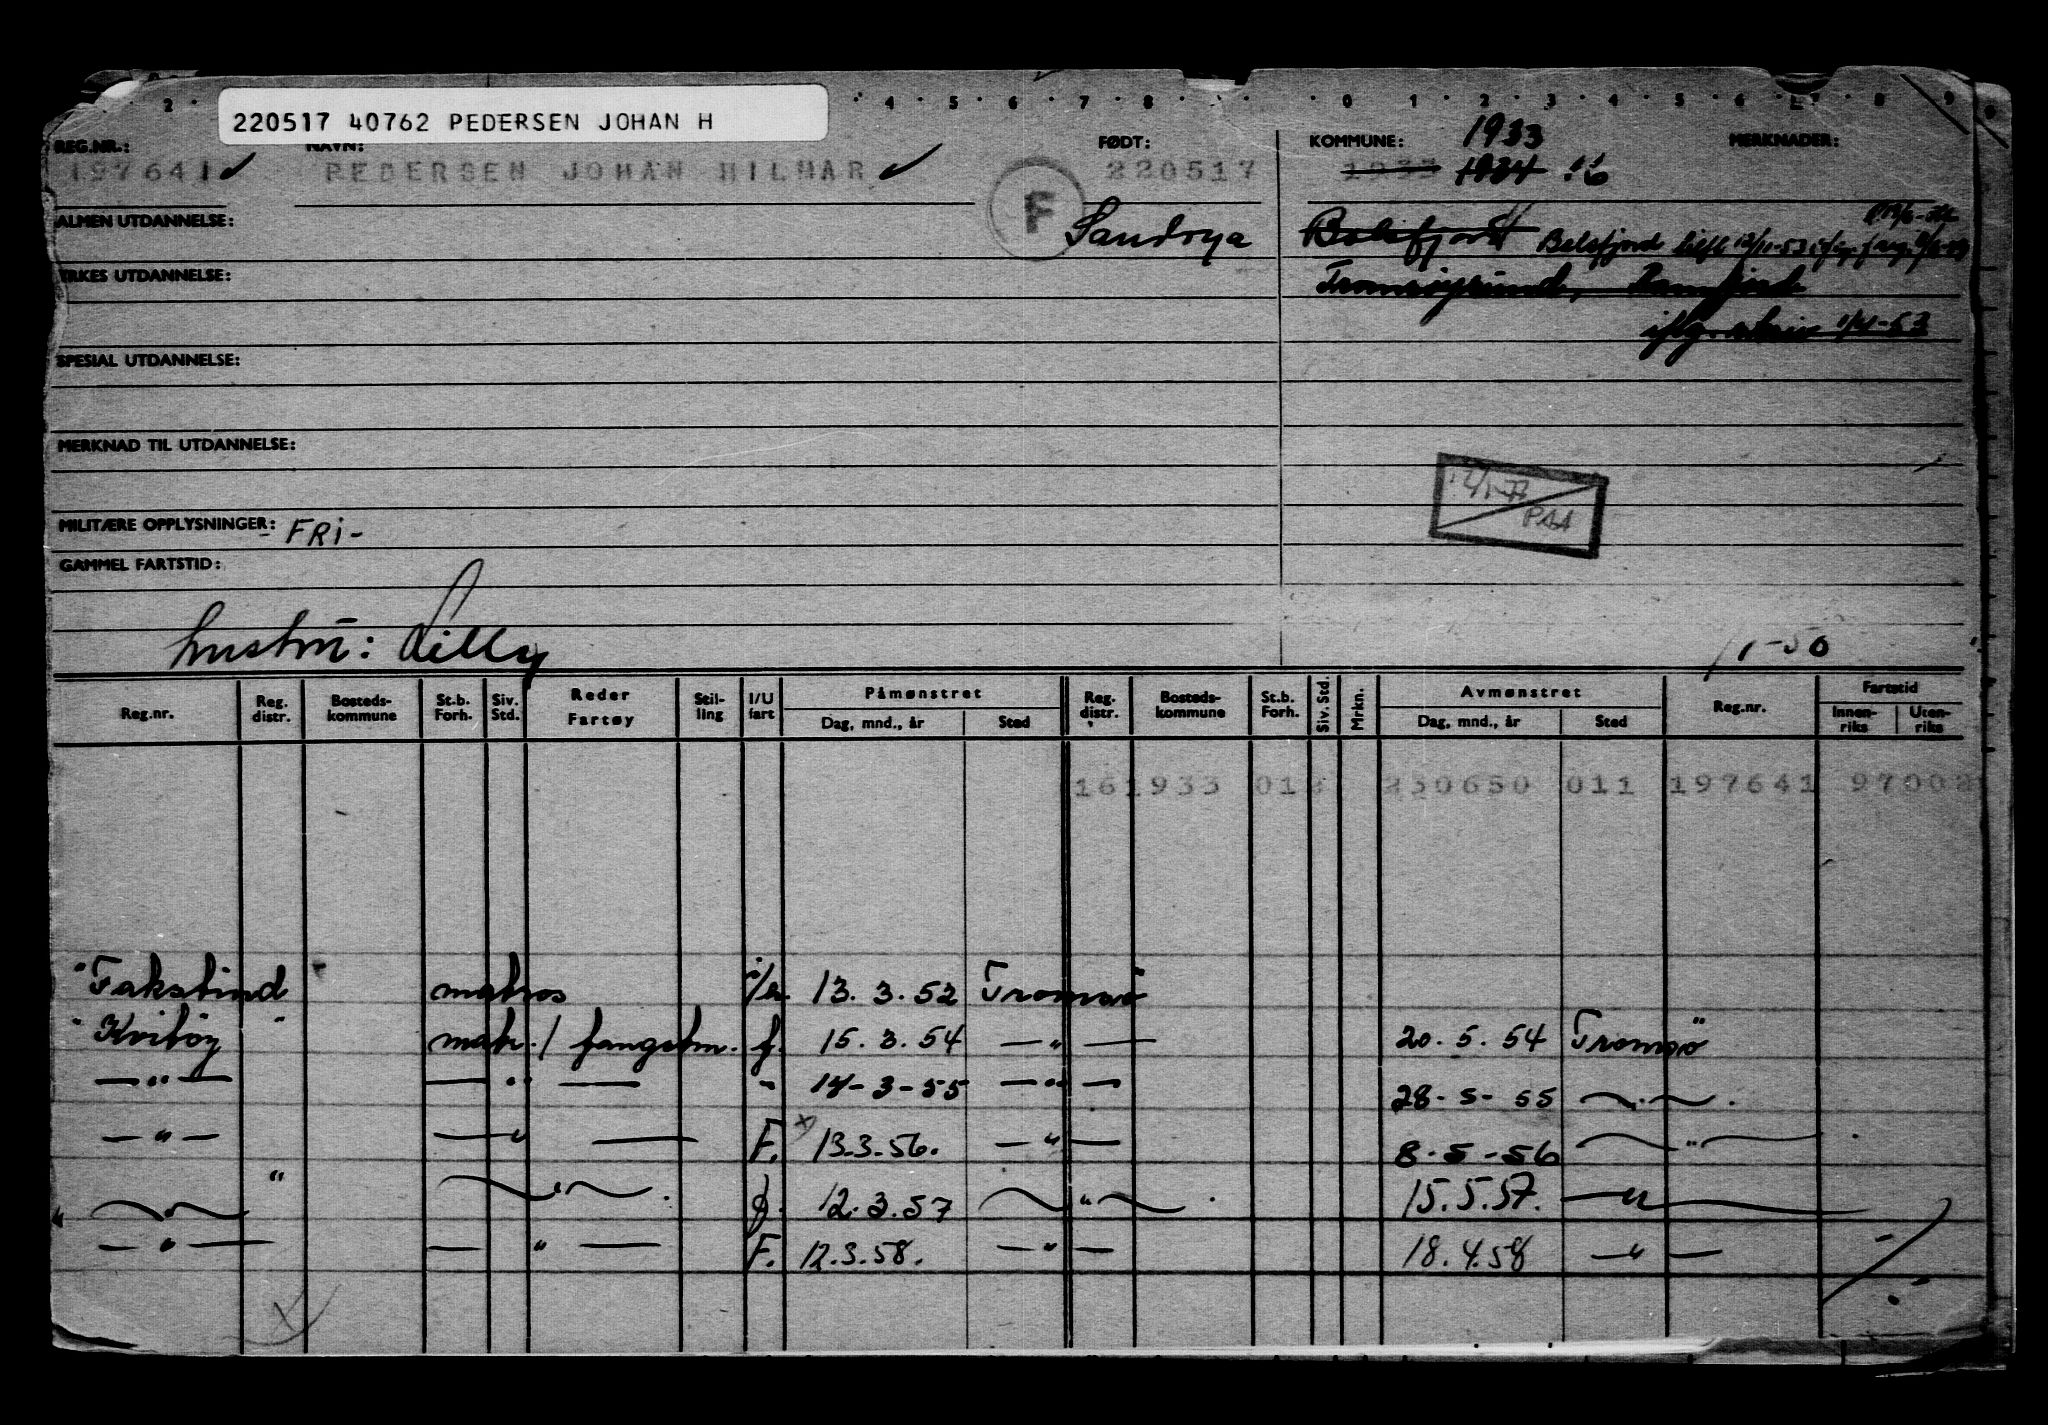 220517 40762 PEDERSEN JOHAN H
REG.NR.: NAVN: FØDT: KOMMUNE: 1933 MERKNADER:
197641 PEDERSEN JOHAN HILMAR F 220517 1933 1934
ALMEN UTDANNELSE: Balsfjord Balsfjord 12/11-53
YRKES UTDANNELSE: Tromsøysund, Ramfjord
iflg. 1/4-53
SPESIAL UTDANNELSE:
MERKNAD TIL UTDANNELSE:
12/1-77
PAA
MILITÆRE OPPLYSNINGER: - FRI -
GAMMEL FARTSTID:
hustru: Lilly 1-50
Reg.nr. Reg. distr. Bosteds-kommune St.b. Forh. Siv. Std. Reder Fartøy Stil-ling I/U fart Påmønstret Dag, mnd., år Sted Reg. distr. Bosteds-kommune St.b. Forh. Siv. Std. Mrkn. Avmønstret Dag, mnd., år Sted Reg.nr. Fartstid Innen-riks Uten-riks
161933 01 230650 011 197641 97002
"Fakstind" matros 13.3.52 Tromsø
"Kvitøy" matr. / fangstm. f. 15.3.54 — " — 20.5.54 Tromsø
— " — — " — - 14-3-55 — " — 28-5-55 — " —
— " — — " — F. 13.3.56. — " — 8-5-56 — " —
— " — — " — f. 12.3.57 — " — 15.5.57. — " —
— " — — " — F. 12.3.58. — " — 18.4.58 — " —